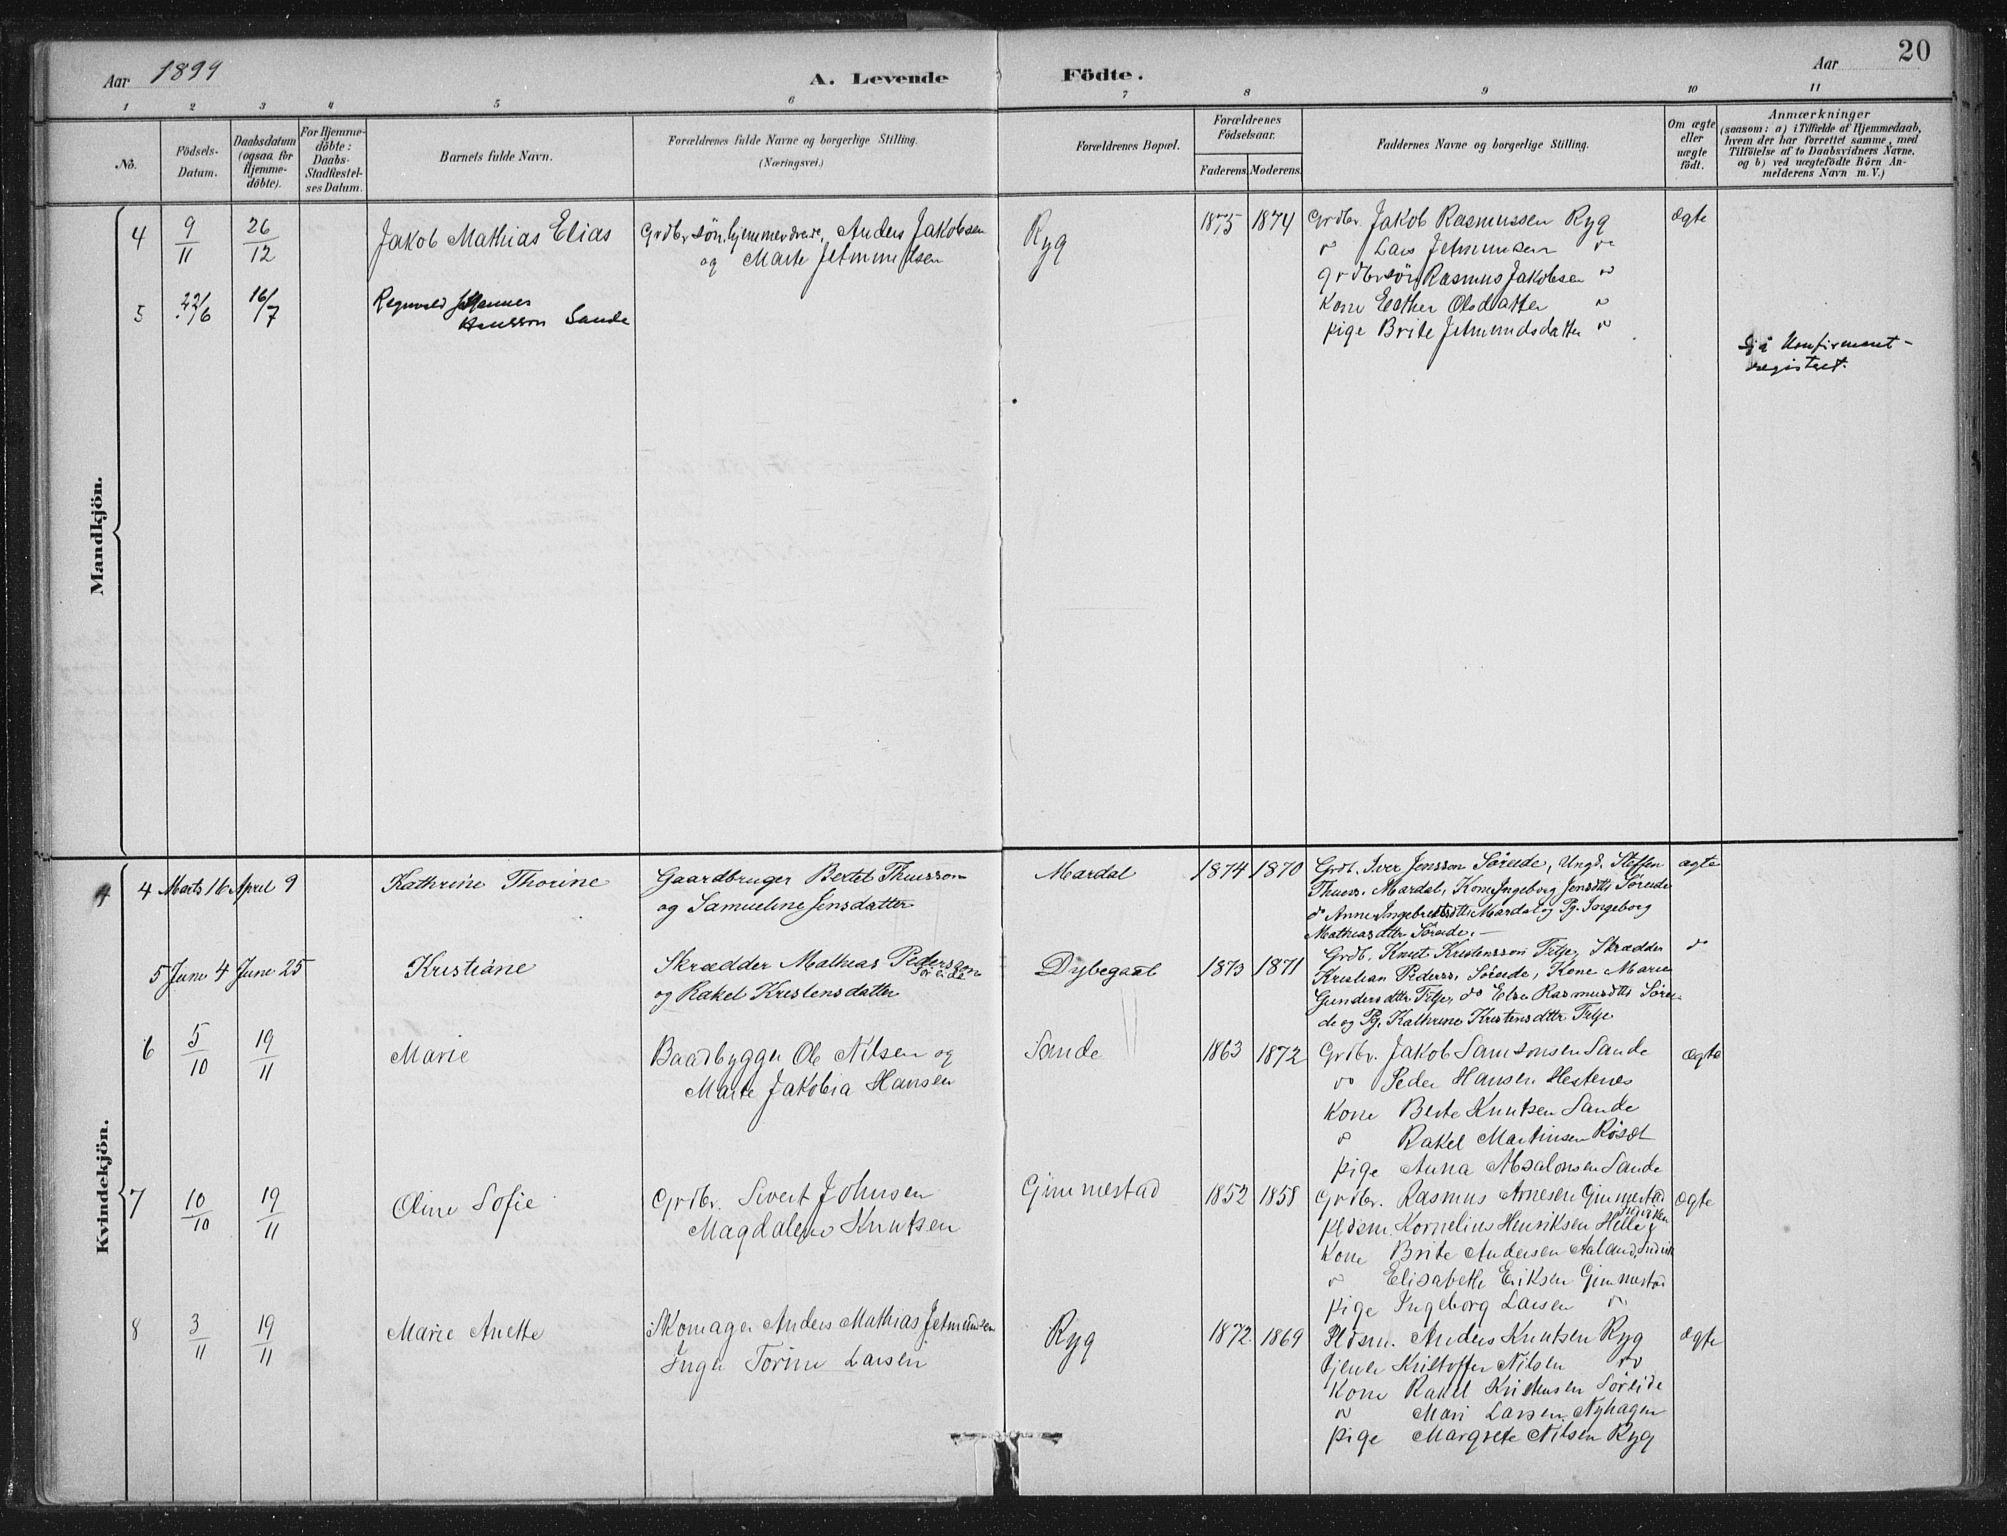 20
Aar 1899
A. Levende Födte.
Aar
1 2 3 4 5 6 7 8 9 10 11
No.
Födsels-Datum.
Daabsdatum (ogsaa for Hjemme-döbte).
For Hjemme-döbte: Daabs-Stadfæstel-ses Datum.
Barnets fulde Navn.
Forældrenes fulde Navne og borgerlige Stilling.
(Næringsvei.)
Forældrenes Bopæl.
Forældrenes Födselsaar.
Faderens. Moderens.
Faddernes Navne og borgerlige Stilling.
Om ægte eller uægte födt.
Anmærkninger
(saasom: a) i Tilfælde af Hjemmedaab,
hvem der har forrettet samme, med
Tilföielse af to Daabsvidners Navne,
og b) ved uægtefödte Börn An-
melderens Navn m. V.)
Mandkjön.
4 9/11 26/12 Jakob Mathias Elias
Grdbrsön, hjemmeværende, Anders Jakobsen
og Marte Jetmundsen
Ryg 1875 1874
Grdbr. Jakob Rasmussen Ryg
do Lars Jetmundsen do
Grdbrsön Rasmus Jakobsen do
Kone Esther Olsdatter do
pige Brite Jetmundsdatter do
Ægte
5 22/6 16/7 Regnvald Johannes
Hansson Sande
Sjå Konfirmant-
registeret.
Kvindekjön.
4 Marts 16 April 9 Kathrine Thorine
Gaardbruger Bertel Thuesson
og Samueline Jensdatter
Mardal 1874 1870
Grdb. Iver Jensson Söreide, Ungk. Steffen
Thuess. Mardal, Kone Ingeborg Jensdtr Söreide
do Anne Ingebretsdtr Mardal og Pg. Ingeborg
Mathiasdtter Söreide.
ægte
5 Juni 4 Juni 25 Kristiane
Skrædder Mathias Pedersson
Söreide
og Rakel Kristensdatter
Dybegaat 1873 1871
Grdb. Knut Kristensson Tilje, Skrædder
Kristian Pederss. Söreide, Kone Marie
Gundersdtter Tilje, do Else Rasmusdtr Sörei-
de og Pg. Kathrine Kristensdttr Tilje
do
6 5/10 19/11 Marie
Baadbygger Ole Nilsen og
Marte Jakobia Hansen
Sande 1863 1872
Grdbr. Jakob Samsonsen Sande
do Peder Hansen Hestenes
Kone Berte Knutsen Sande
do Rakel Martinsen Rösæt
pige Anna Absalonsen Sande
Ægte
7 10/10 19/11 Oline Sofie
Grdbr. Sivert Johnsen
Magdalene Knutsen
Gimmestad 1852 1858
Grdbr. Rasmus Arnesen Gimmestad
Indviken
pldsm. Kornelius Henriksen Helle
Kone Brite Andersen Aaland, Indvik
do Elisabeth Eriksen Gimmestad
pige Ingeborg Larsen do
Ægte
8 3/11 19/11 Marie Anette
Skomager Anders Mathias Jetmundsen
Inger Torine Larsen
Ryg 1872 1869
Pldsm. Anders Knutsen Ryg
tjener Kristoffer Nilsen do
Kone Rakel Kristensen Söreide
do Mari Larsen Nyhagen
pige Margrete Nilsen Ryg
Ægte